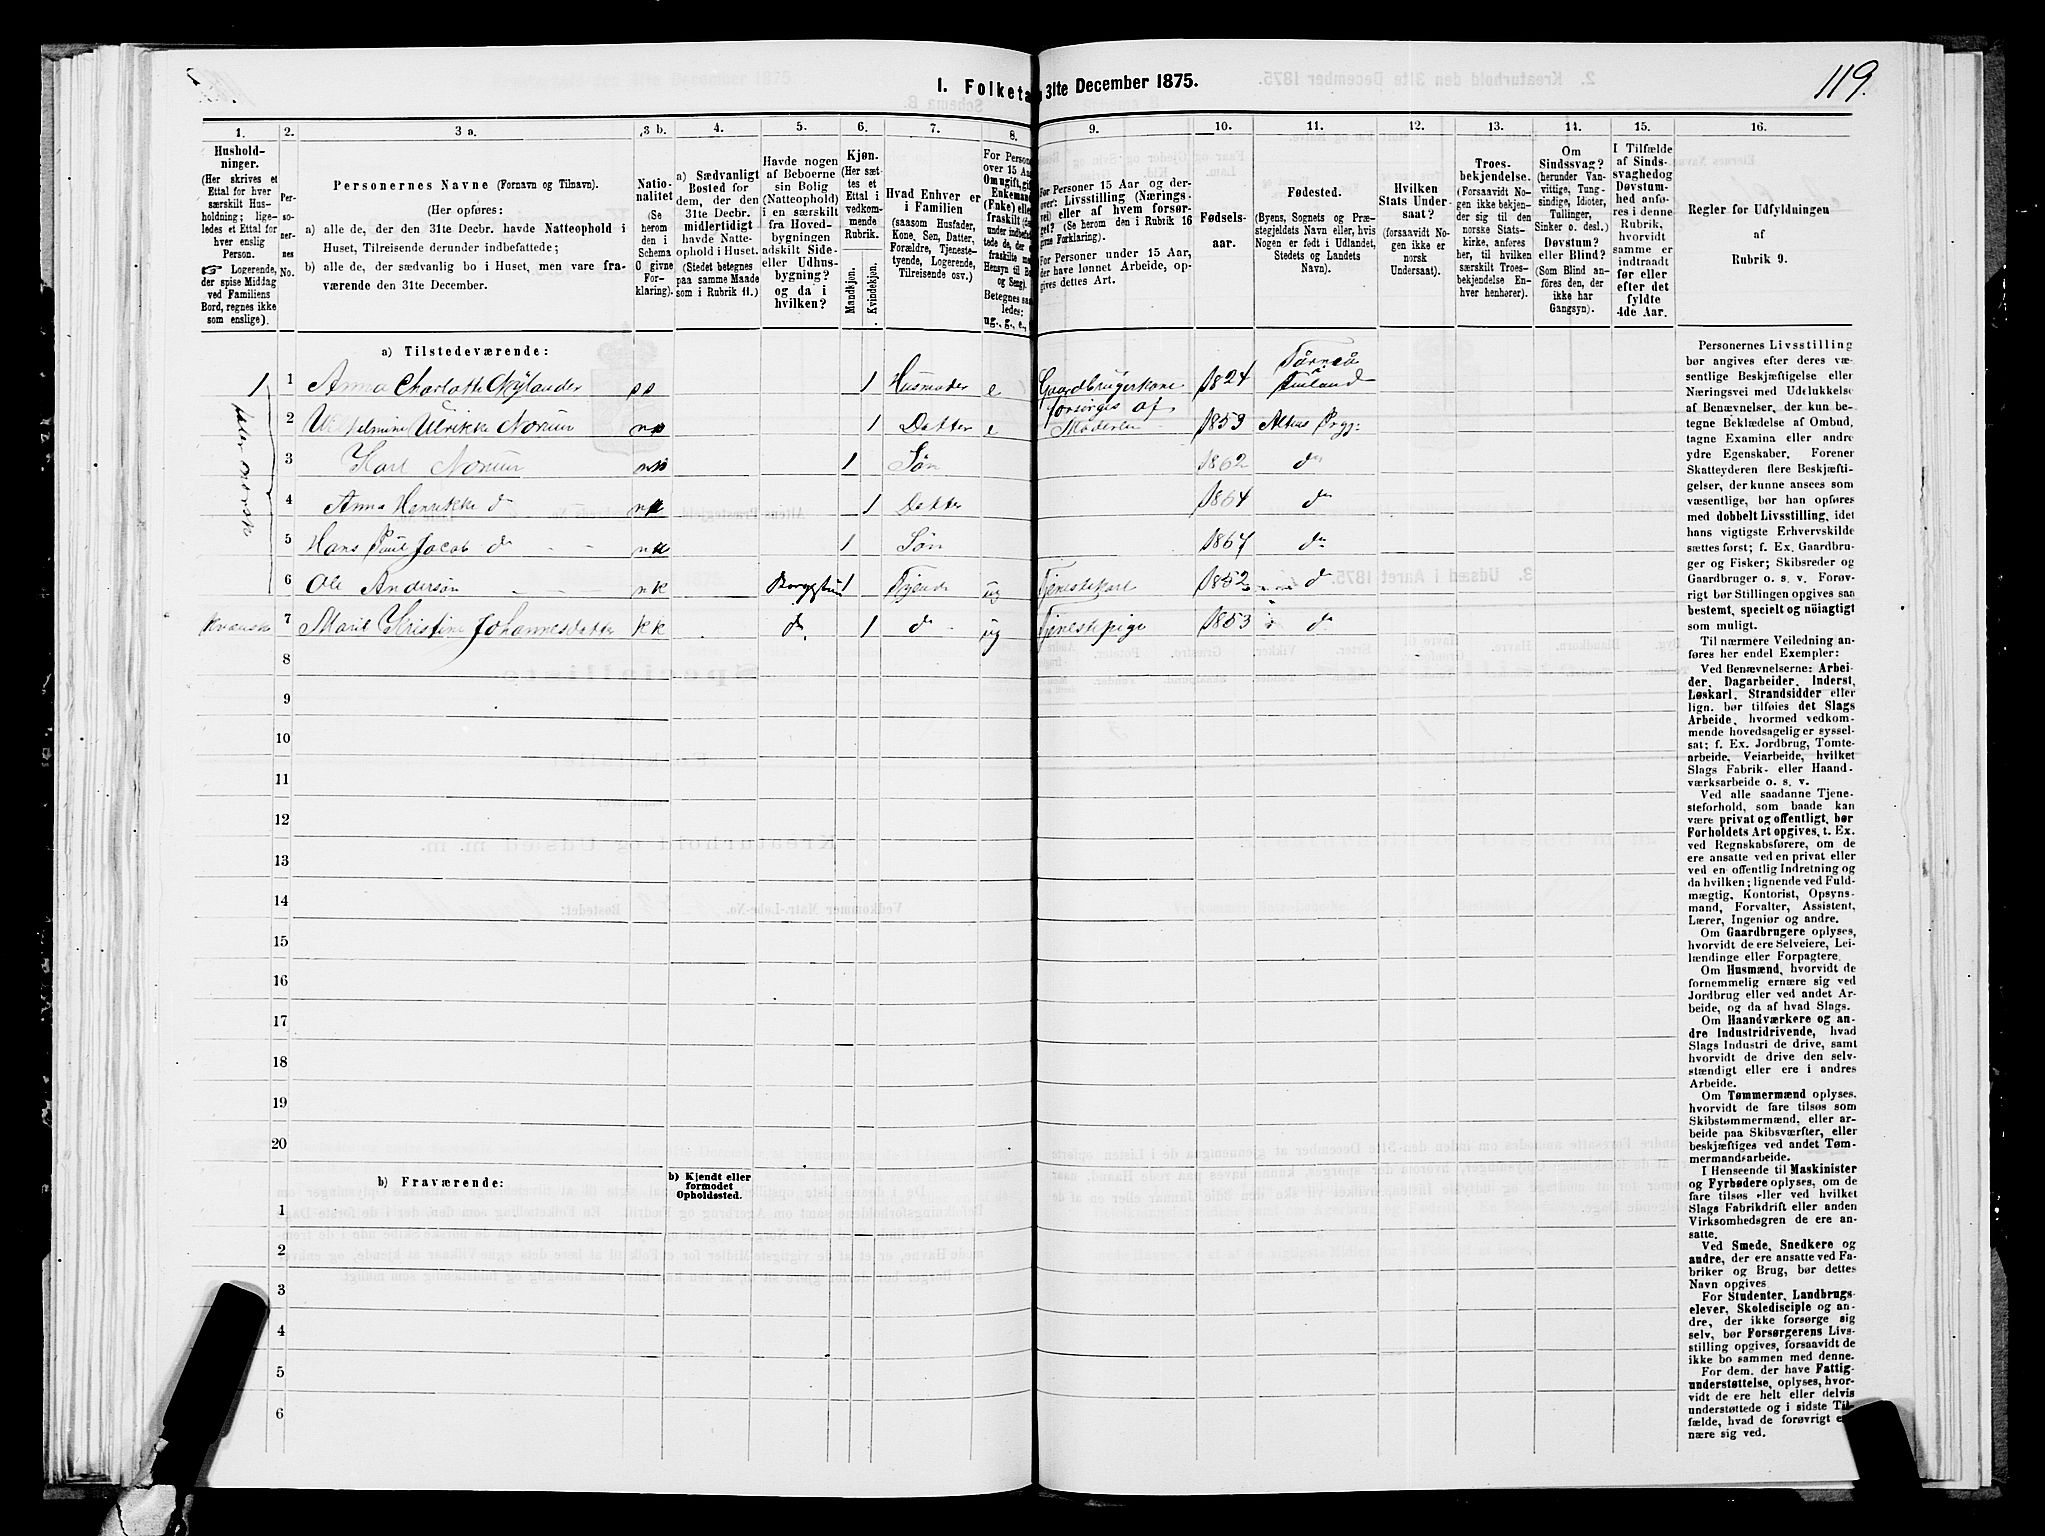 119.
I. Folketa 31te December 1875.
1. 2. 3 a. 3 b. 4. 5. 6. 7. 8. 9. 10. 11. 12. 13. 14. 15. 16.
Hushold-
ninger.
(Her skrives et
Ettal for hver
særskilt Hus-
holdning; lige-
ledes et Ettal for
hver enslig
Person.
☞ Logerende,
der spise Middag
ved Familiens
Bord, regnes ikke
som enslige).
Per-
so-
ner-
nes
No.
Personernes Navne (Fornavn og Tilnavn).
(Her opføres:
a) alle de, der den 31te Decbr. havde Natteophold i
Huset, Tilreisende derunder indbefattede;
b) alle de, der sædvanlig bo i Huset, men vare fra-
værende den 31te December.
Natio-
nalitet
(Se
herom
den i
Schema
O givne
For-
klaring).
a) Sædvanligt
Bosted for
dem, der den
31te Decbr.
midlertidigt
havde Natte-
ophold i Huset.
(Stedet betegnes
paa samme Maade
som i Rubrik 11.)
Havde nogen
af Beboerne
sin Bolig
(Natteophold)
i en særskilt
fra Hoved-
bygningen
adskilt Side-
eller Udhus-
bygning?
og da i
hvilken?
Kjøn.
(Her sæt-
tes et
Ettal i
vedkom-
mende
Rubrik.
Mandkjøn.
Kvindekjøn.
Hvad Enhver er
i Familien
(saasom Husfader,
Kone, Søn, Datter,
Forældre, Tjeneste-
tyende, Logerende,
Tilreisende osv.)
For Person
over 15 Aar
Om ugift, gif
Enkemand
(Fnke) elle
fraskilt (se
under indbefat
tede de, der e
fraskilte me
Hensyn til Bo
og Seng).
Betegnes saa
ledes:
ug., g., e.,
For Personer 15 Aar og der-
over: Livsstilling (Nærings-
vei) eller af hvem forsør-
get? (Se herom i Rubrik 16
givne Forklaring).
For Personer under 15 Aar,
der have lønnet Arbeide, op-
gives dettes Art.
Fødsels-
aar.
Fødested.
(Byens, Sognets og Præ-
stegjeldets Navn eller, hvis
Nogen er født i Udlandet,
Stedets og Landets
Navn).
Hvilken
Stats Under-
saat?
(forsaavidt No-
gen ikke er
norsk
Undersaat).
Troes-
bekjendelse.
(Forsaavidt No-
gen ikke bekjen-
der sig til den
norske Stats-
kirke, anføres
her, til hvilken
særskilt Troes-
bekjendelse En-
hver henhører).
Om
Sindssvag?
(herunder Van-
vittige, Tung-
sindige, Idioter,
Tullinger,
Sinker o. desl.)
Døvstum?
eller Blind?
(Som Blind an-
føres den, der
ikke har
Gangsyn).
I Tilfælde
af Sinds-
svaghed og
Døvstum-
hed anfø-
res i denne
Rubrik,
hvorvidt
samme er
indtraadt
før eller
efter det
fyldte
4de Aar.
Regler for Udfyldningen
af
Rubrik 9.
a) Tilstedeværende:
1 1 Anna Charlotte ff 1 Husmoder e Gaardbrugerkone 1824 Torneå Finland
2 Ulrikke Norum 1 Datter e forsørges af Moderen 1853 Altens Prgj:
3 Karl Norum 1 Søn 1862 do
4 Anna Henrikke do 1 Datter 1864 do
5 Hans Paul Jacob do 1 Søn 1867 do
6 Ole Anderson nk 1 Tjenende ug Tjenestekarl 1852 do
Kvænske 7 Marit Kristine Johannesdatter kk do 1 do ug Tjenestepige 1853 do
8
9
10
11
12
13
14
15
16
17
18
19
20
b) Fraværende:
b) Kjendt eller
formodet
Opholdssted.
1
2
3
4
5
6
Personernes Livsstilling
bør angives efter deres væ-
sentlige Beskjæftigelse eller
Næringsvei med Udelukkelse
af Benævnelser, der kun be-
tegne Beklædelse af Ombud,
tagne Examina eller andre
ydre Egenskaber. Forener
Skatteyderen flere Beskjæfti-
gelser, der kunne ansees som
væsentlige, bør han opføres
med dobbelt Livsstilling, idet
hans vigtigste Erhvervskilde
sættes først; f. Ex. Gaardbru-
ger og Fisker; Skibsreder og
Gaardbruger o. s. v. Forøv-
rigt bør Stillingen opgives saa
bestemt, specielt og nöiagtigt
som muligt.
Til nærmere Veiledning an-
føres her endel Exempler:
Ved Benævnelserne: Arbei-
der, Dagarbeider, Inderst,
Løskarl, Strandsidder eller
lign. bør tilføies det Slags
Arbeide, hvormed vedkom-
mende hovedsagelig er syssel-
sat; f. Ex. Jordbrug, Tomte-
arbeide, Veiarbeide, hvilket
Slags Fabrik- eller Haand-
værksarbeide o. s. v.
Ved alle saadanne Tjene-
steforhold, som baade kan
være privat og offentligt, bør
Forholdets Art opgives, t. Ex.
ved Regnskabsførere, om de
ere ansatte ved en privat eller
ved en offentlig Indretning og
da hvilken; lignende ved Fuld-
mægtig, Kontorist, Opsyns-
mand, Forvalter, Assistent,
Lærer, Ingeniør og andre.
Om Gaardbrugere oplyses,
hvorvidt de ere Selveiere, Lei-
lændinge eller Forpagtere.
Om Husmænd, hvorvidt de
fornemmelig ernære sig ved
Jordbrug eller ved andet Ar-
beide, og da af hvad Slags.
Om Haandværkere og an-
dre Industridrivende, hvad
Slags Industri de drive, samt
hvorvidt de drive den selv-
stændigt eller ere i andres
Arbeide.
Om Tømmermænd oplyses,
hvorvidt de fare tilsøs som
Skibstømmermænd, eller ar-
beide paa Skibsværfter, eller
beskjæftiges ved andet Tøm-
mermandsarbeide.
I Henseende til Maskinister
og Fyrbødere oplyses, om de
fare tilsøs eller ved hvilket
Slags Fabrikdrift eller anden
Virksomhedsgren de ere an-
satte.
Ved Smede, Snedkere og
andre, der ere ansatte ved Fa-
briker og Brug, bør dettes
Navn opgives
For Studenter, Landbrugs-
elever, Skoledisciple og an-
dre, der ikke forsørge sig
selv, bør Forsørgerens Livs-
stilling opgives, forsaavidt de
ikke bo sammen med denne.
For dem, der have Fattig-
understøttelse, oplyses, hvor-
vidt de ere helt eller delvis
understøttede og i sidste Til-
fælde, hvad de forøvrigt er-
nære sig ved.